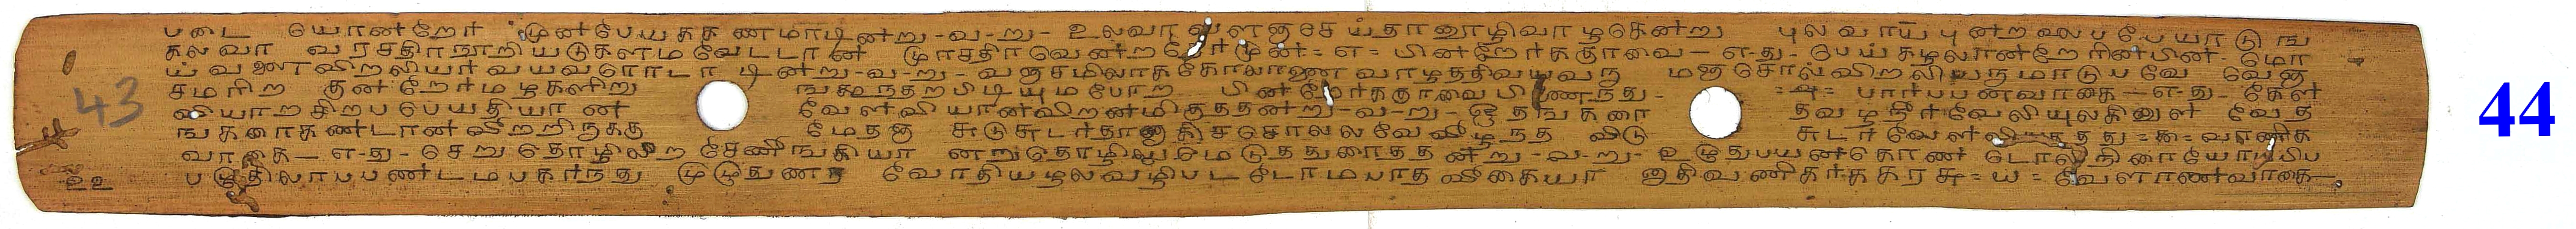 படை யொனறேர் முனபேயகக ணமாடினறு-வ-று- உலவா வளஞசேய்தானூழிவாழகெனறு புலவாய புனறலைப பேயாடுங
கலவா வரசதிரநூறியடுகளம வேடடான் முரசதிரவென்றதேர்முன்=எ= பின்றேர்ககுரவை-எ-து- பெய்கழலான்றேரின்பின் மொ
ய்வளைவிறலியர் வயவரொடா டின்று-வ-று- வஞசமிலாககோலாணை வாழததிவயவரு மஞசொல்விறலியருமாடுபவே வெஞ
சமரிற குன்றேர்மழகளிறு ஙகூநதறபிடியுமபோற பின்றேர்ககுரவைபிணைநது- =அ= பார்பபனவாகை-எ-து- கேள்
வியாற சிறபபெயதியா ன் வேள்வியான்விறன்மிகுததன்று-வ-று- ஓதஙகரை தவழ்நீர்வேலியுலகினுள் வேத
ஙகரைகண்டான்விறறிருககு மேதஞ சுடுசுடர்தானாகிசசொலலவேவீழநத விடு சுடர்வேள்வி ததது=கூ= வாணிக
வாகை-எ-து- செறுதொழிலிற சேணீஙகியா னறுதொழிலுமெடுததுரைததன்று-வ-று- உழுதுபயன்கொண் டொலிநிரையோமபிப
பழுதிலாபபண்டமபகர்நது முழுதுணர வோதியழலவழிபடடோமபாத வீகையா னதிவணிகர்ககரசு=ய= வேளாண்வாகை-
உஉ
43
44